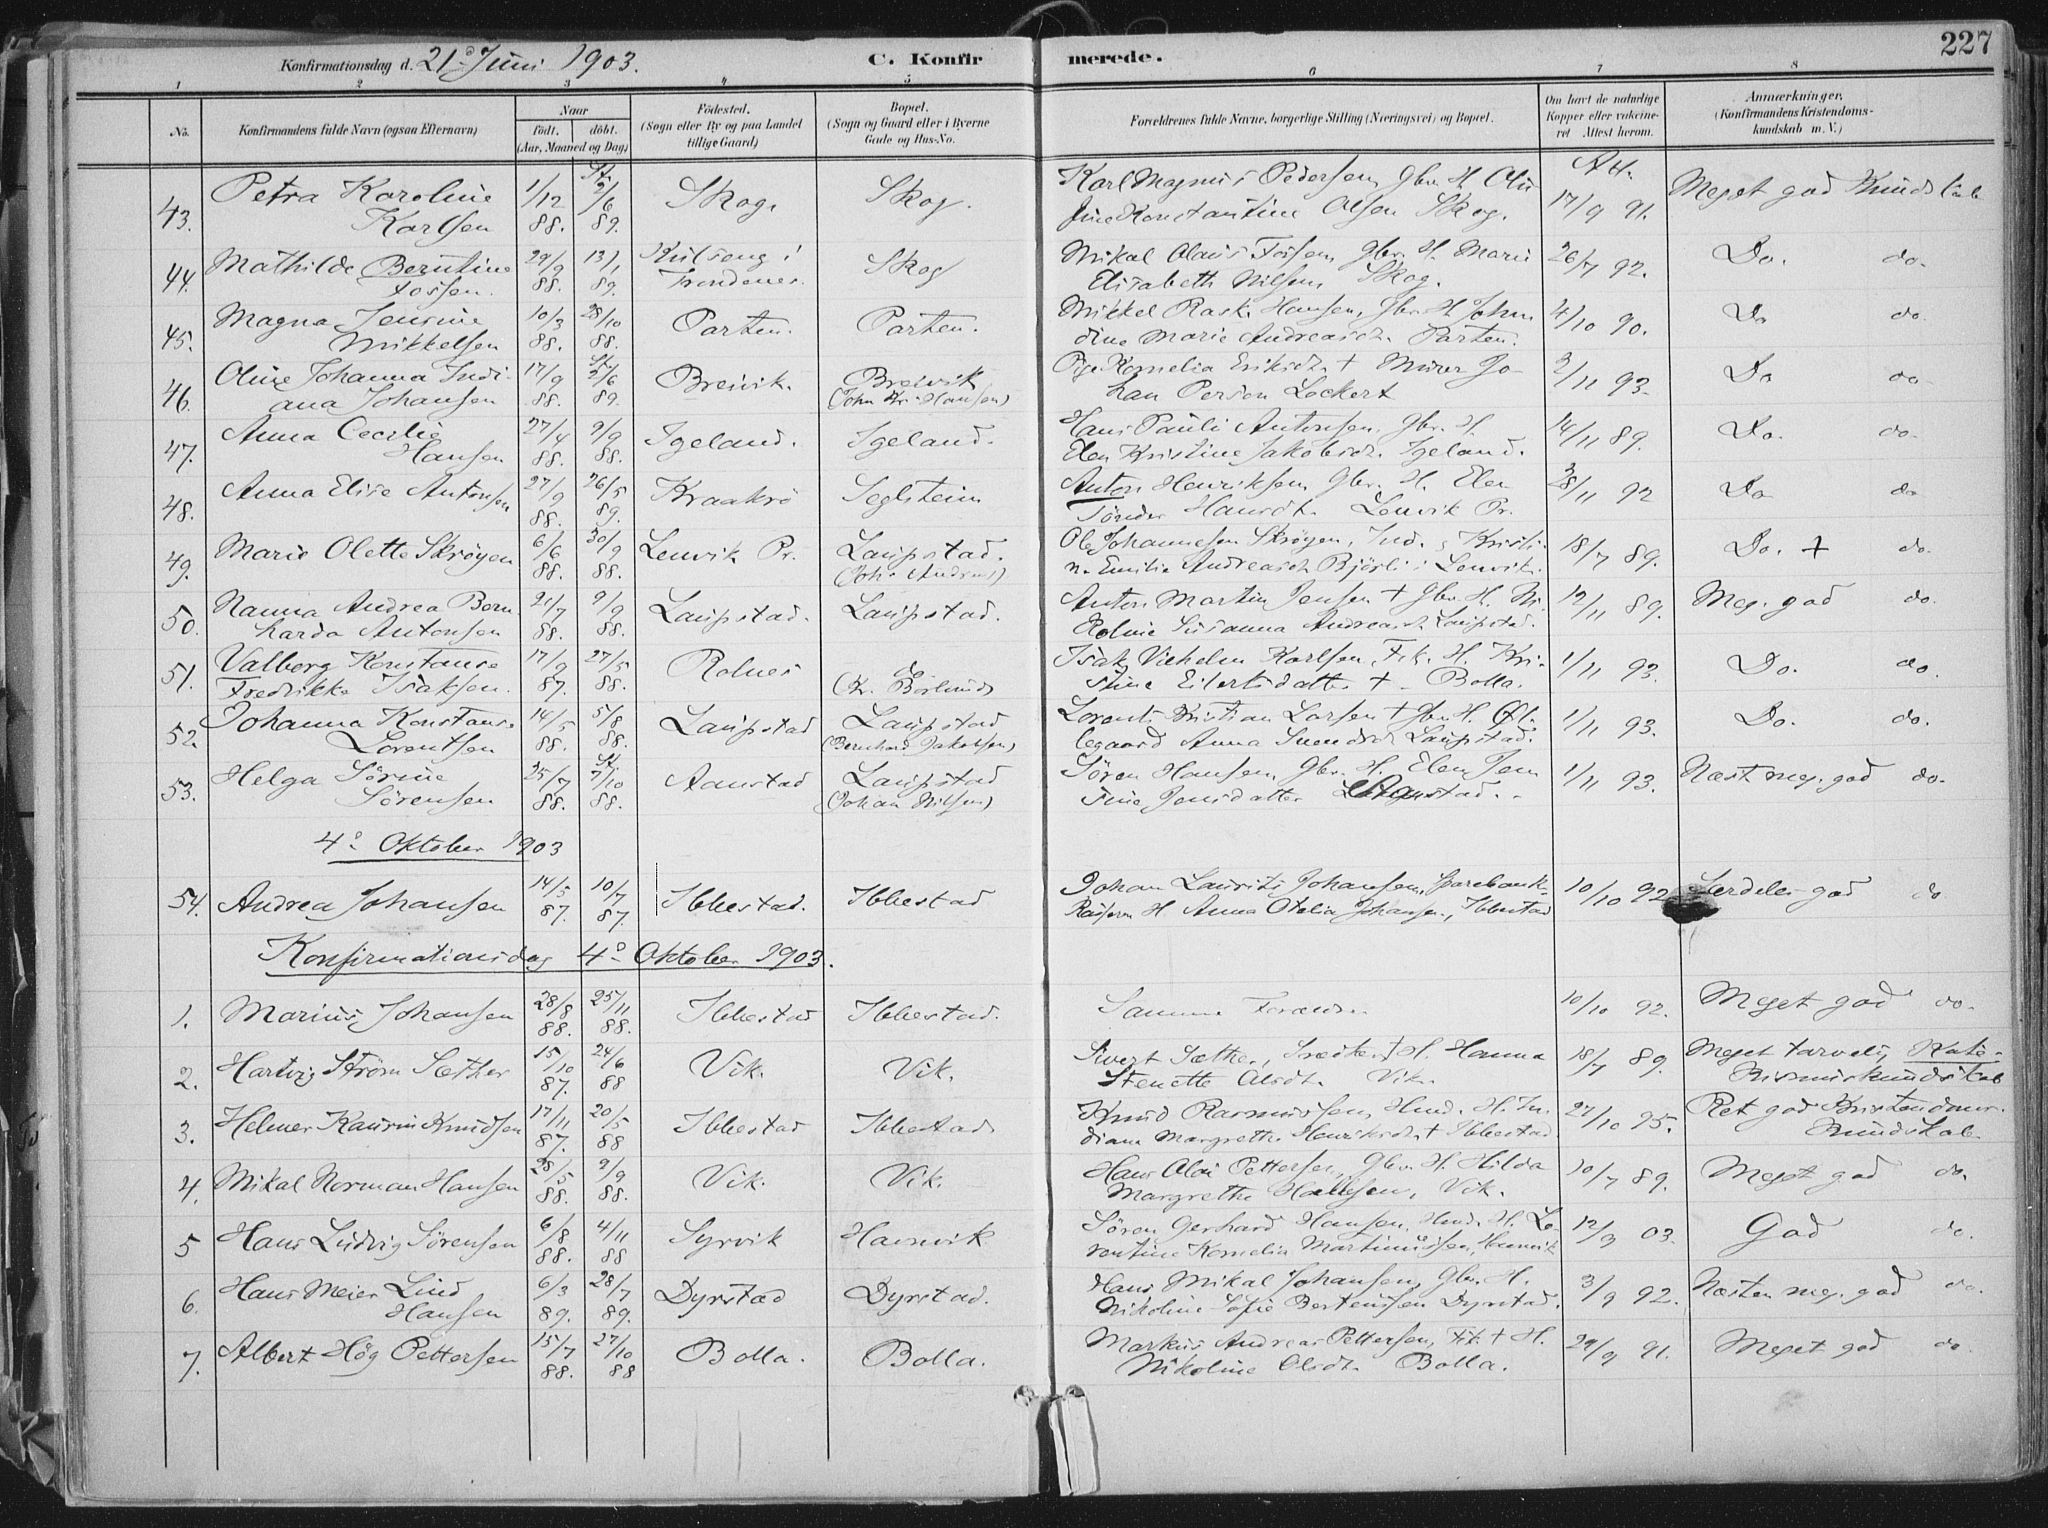 227
Konfirmationsdag d. 21de Juni 1903. C. Konfirmerede.
1 2 3 4 5 6 7 8
No. Konfirmandens fulde Navn (ogsaa Efternavn) Naar født. døbt. (Aar, Maaned og Dag) Fødested. (Sogn eller By og paa Landet tillige Gaard) Bopæl. (Sogn og Gaard eller i Byerne Gade og Hus-No.
Forældrenes fulde Navne, borgerlige Stilling (Næringsvei) og Bopæl. Om havt de naturlige Kopper eller vaccineret. Attest herom. Anmærkninger. (Konfirmandens Kristendomskundskab m. V.)
43. Petra Karoline Karlsen 1/12 88. St. 2/6 89. Skog. Skog. Karl Magnus Pedersen, Gbr. H. Olufine Konstantine Olsen Skog. Att. 17/9 91. Meget god Kundskab
44. Mathilde Berntine Fossen. 29/9 88. 13/1 89. Kulseng i Trondenes. Skog Mikal Olaus Fossen Gbr. H. Marie Elisabeth Nilsen, Skog. 26/7 92. Do. do.
45. Magna Jensine Mikkelsen 10/3 88. 28/10 88. Parten. Parten. Mikkel Rask Hansen, Gbr. H. Johandine Marie Andreasdt. Parten. 4/10 90. Do do.
46. Oline Johanna Indiana Johansen 17/9 88. St. 2/6 89. Breivik. Breivik (John Kr. Hansen) Pige Kornelia Eriksdt. + Murer Johan Persen Lockert 2/11 93. Do do.
47. Anna Cecilie Hansen 27/4 88. 9/9 88. Igeland. Igeland. Hans Pauli Antonsen, Gbr. H. Elen Kristine Jakobsdt. Igeland. 14/11 89. Do. do.
48. Anna Elise Antonsen 27/9 88. 26/5 89. Kraakrø Seglsteim Anton Henriksen, Gbr. H. Elen Tønder Hansdt. Lenvik Pr. 28/11 92 Do do
49. Marie Olette Skrøyen 6/6 88. 30/9 88. Lenvik Pr. Laupstad. (Joh. Andreas) Ole Johannesen Skrøyen, Ind. & Kristine Emilie Andreasdt Bjørli i Lenvik. 18/7 89. Do. + do.
50. Nanna Andrea Bernharda Antonsen 21/7 88. 9/9 88. Laupstad. Laupstad. Anton Martin Jensen + Gbr. H. Nikoline Susanna Andreasdt. Laupstad. 12/11 89. Meg. god do.
51. Valborg Konstanse Fredrikke Isaksen. 17/9 87. 27/5 88. Rolnes do (Kr. Børlund) Isak Vilhelm Karlsen, Fik. H. Kristine Eilertsdatter + Bolla. 1/11 93. Do. do.
52. Johanna Konstanse Lorentsen 14/5 88. 5/8 88. Laupstad Laupstad (Bernhard Jakobsen) Lorents Kristian Larsen + Gbr. H. Øllegaard Anna Svendsdt Laupstad. 1/11 93. Do. do.
53. Helga Sørine Sørensen 25/7 88. St. 7/10 88. Aanstad Laupstad (Johan Nilsen) Søren Hansen, Gbr. H. Elen Jensine Jensdatter Aanstad. 1/11 93. Næst meg. god do.
4de Oktober 1903
54. Andrea Johansen 14/5 87. 10/7 87. Ibbestad. Ibbestad Johan Laurits Johansen, Sparebankkasserer H. Anna Otelia Johansen, Ibbestad 10/10 92 Særdeles god do
Konfirmationsdag 4de Oktober 1903.
1. Marius Johansen 28/8 88. 25/11 88. Ibbestad Ibbestad. Samme Forældre. 10/10 92. Meget god do.
2. Hartvig Strøm Sæther 15/10 87. 24/6 88 Vik. Vik. Sivert Sæther, Snedker + H. Hanna Stenette Olsdt. Vik. 18/7 89. Meget tarvelig Katekismuskundskab
3. Helmer Kaurin Knudsen 17/11 87. 20/5 88 Ibbestad Ibbestad Knud Rasmussen, Hmd. H. Indiana Margrethe Henriksdt + Ibbestad. 27/10 95. Ret god Kristendomskundskab
4. Mikal Norman Hansen 28/5 88. 9/9 88. Vik. Vik. Hans Olai Pettersen, Gbr. H. Hilda Margrethe Hansen, Vik. 10/7 89. Meget god do.
5 Hans Ludvig Sørensen 6/8 88. 4/11 88 Sørvik Havnvik Søren Gerhard Hansen, Hmd. H. Lorentine Kornelia Martinussen, Havnvik 12/9 03. God do.
6. Hans Meier Lind Hansen 6/3 89. 28/7 89. Dyrstad Dyrstad. Hans Mikal Johansen, Gbr. H. Nikoline Sofie Berteussen Dyrstad. 3/9 92. Næsten meg. god do.
7. Albert Høg Pettersen 15/7 88. 27/10 88 Bolla. Bolla. Markus Andreas Pettersen, Fik. + H. Nikoline Olsdt. Bolla. 29/9 91. Meget god do.